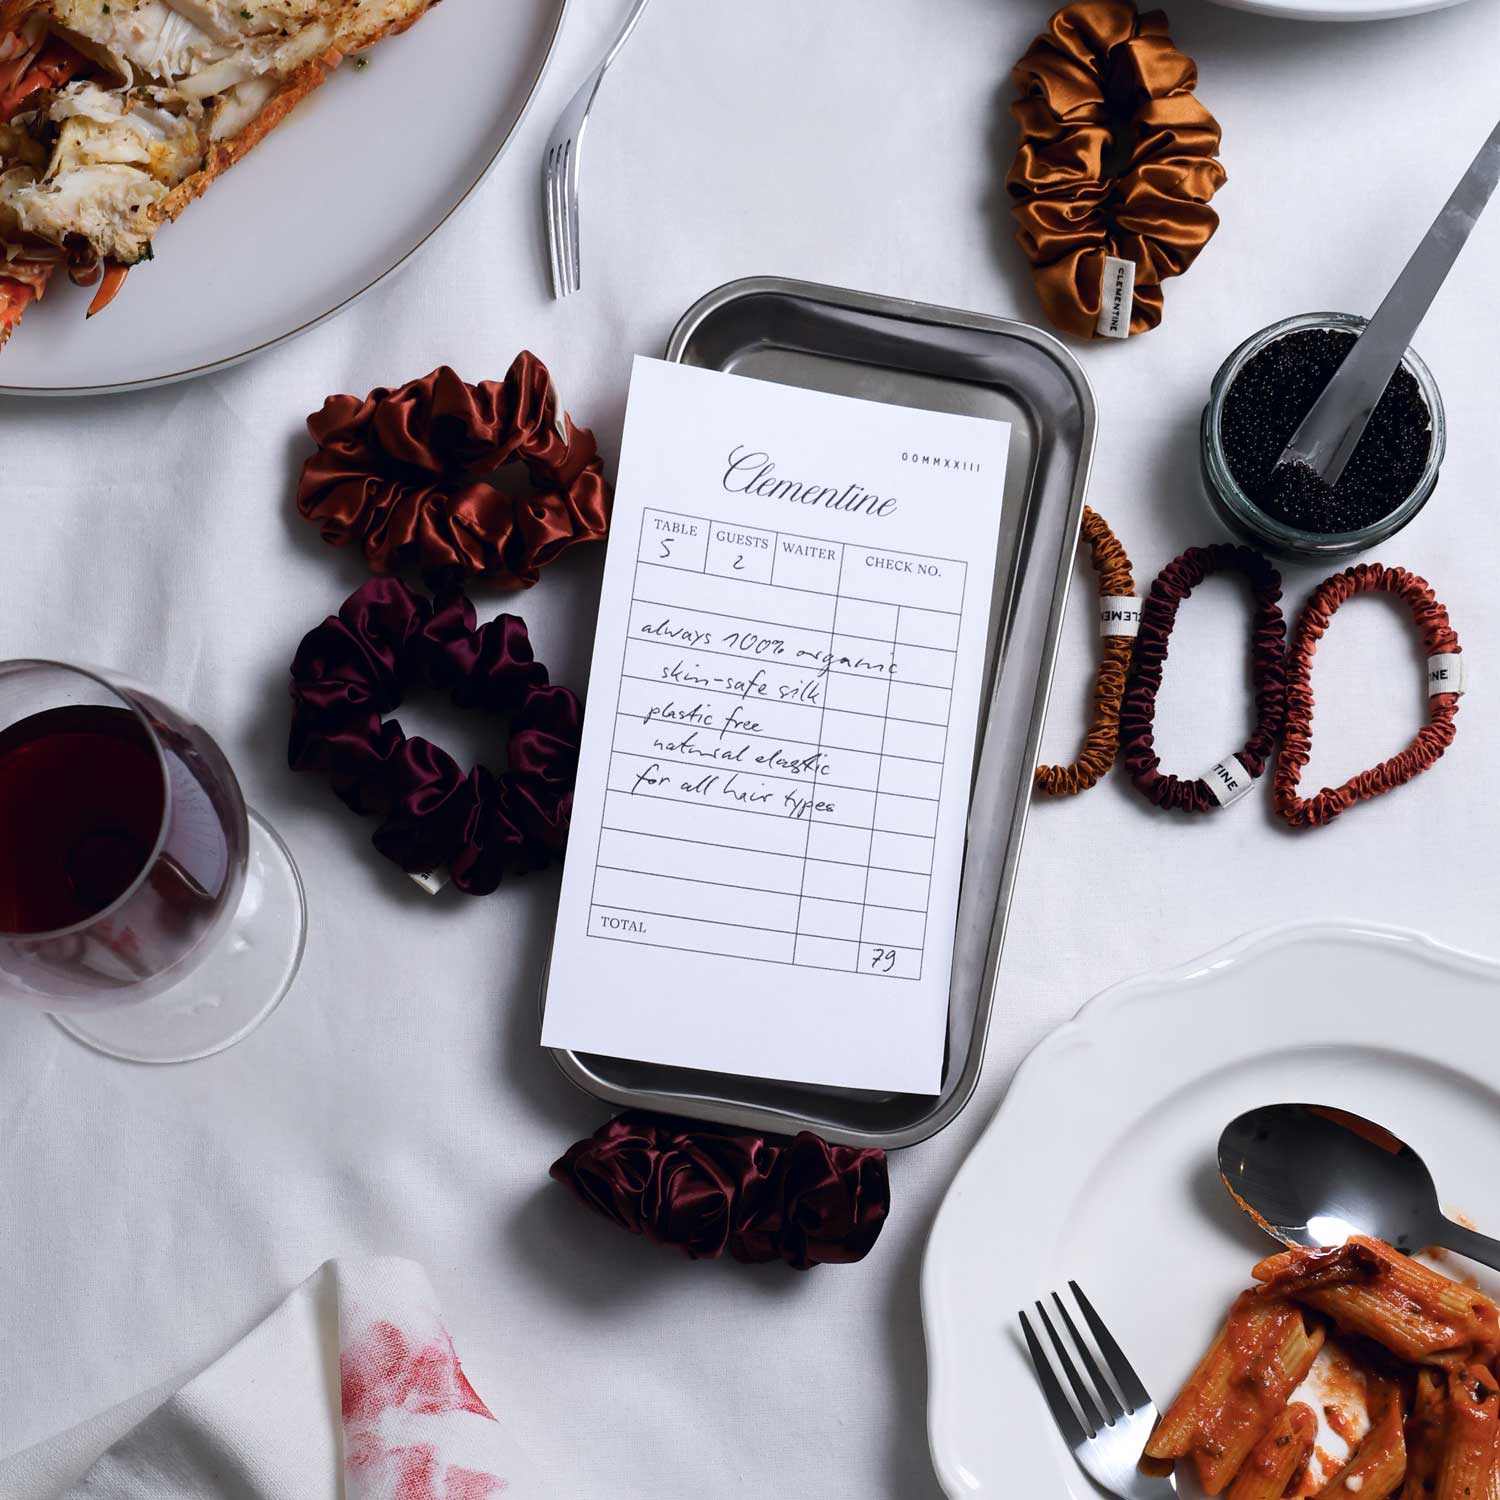 CLEMENTINE
OOMMXXIII
Clementine
TABLE GUESTS WAITER CHECK NO.
5 2
always 100% organic
skin-safe silk
plastic free
natural elastic
for all hair types
TOTAL
79
CLEMEN
TINE
INE
NE